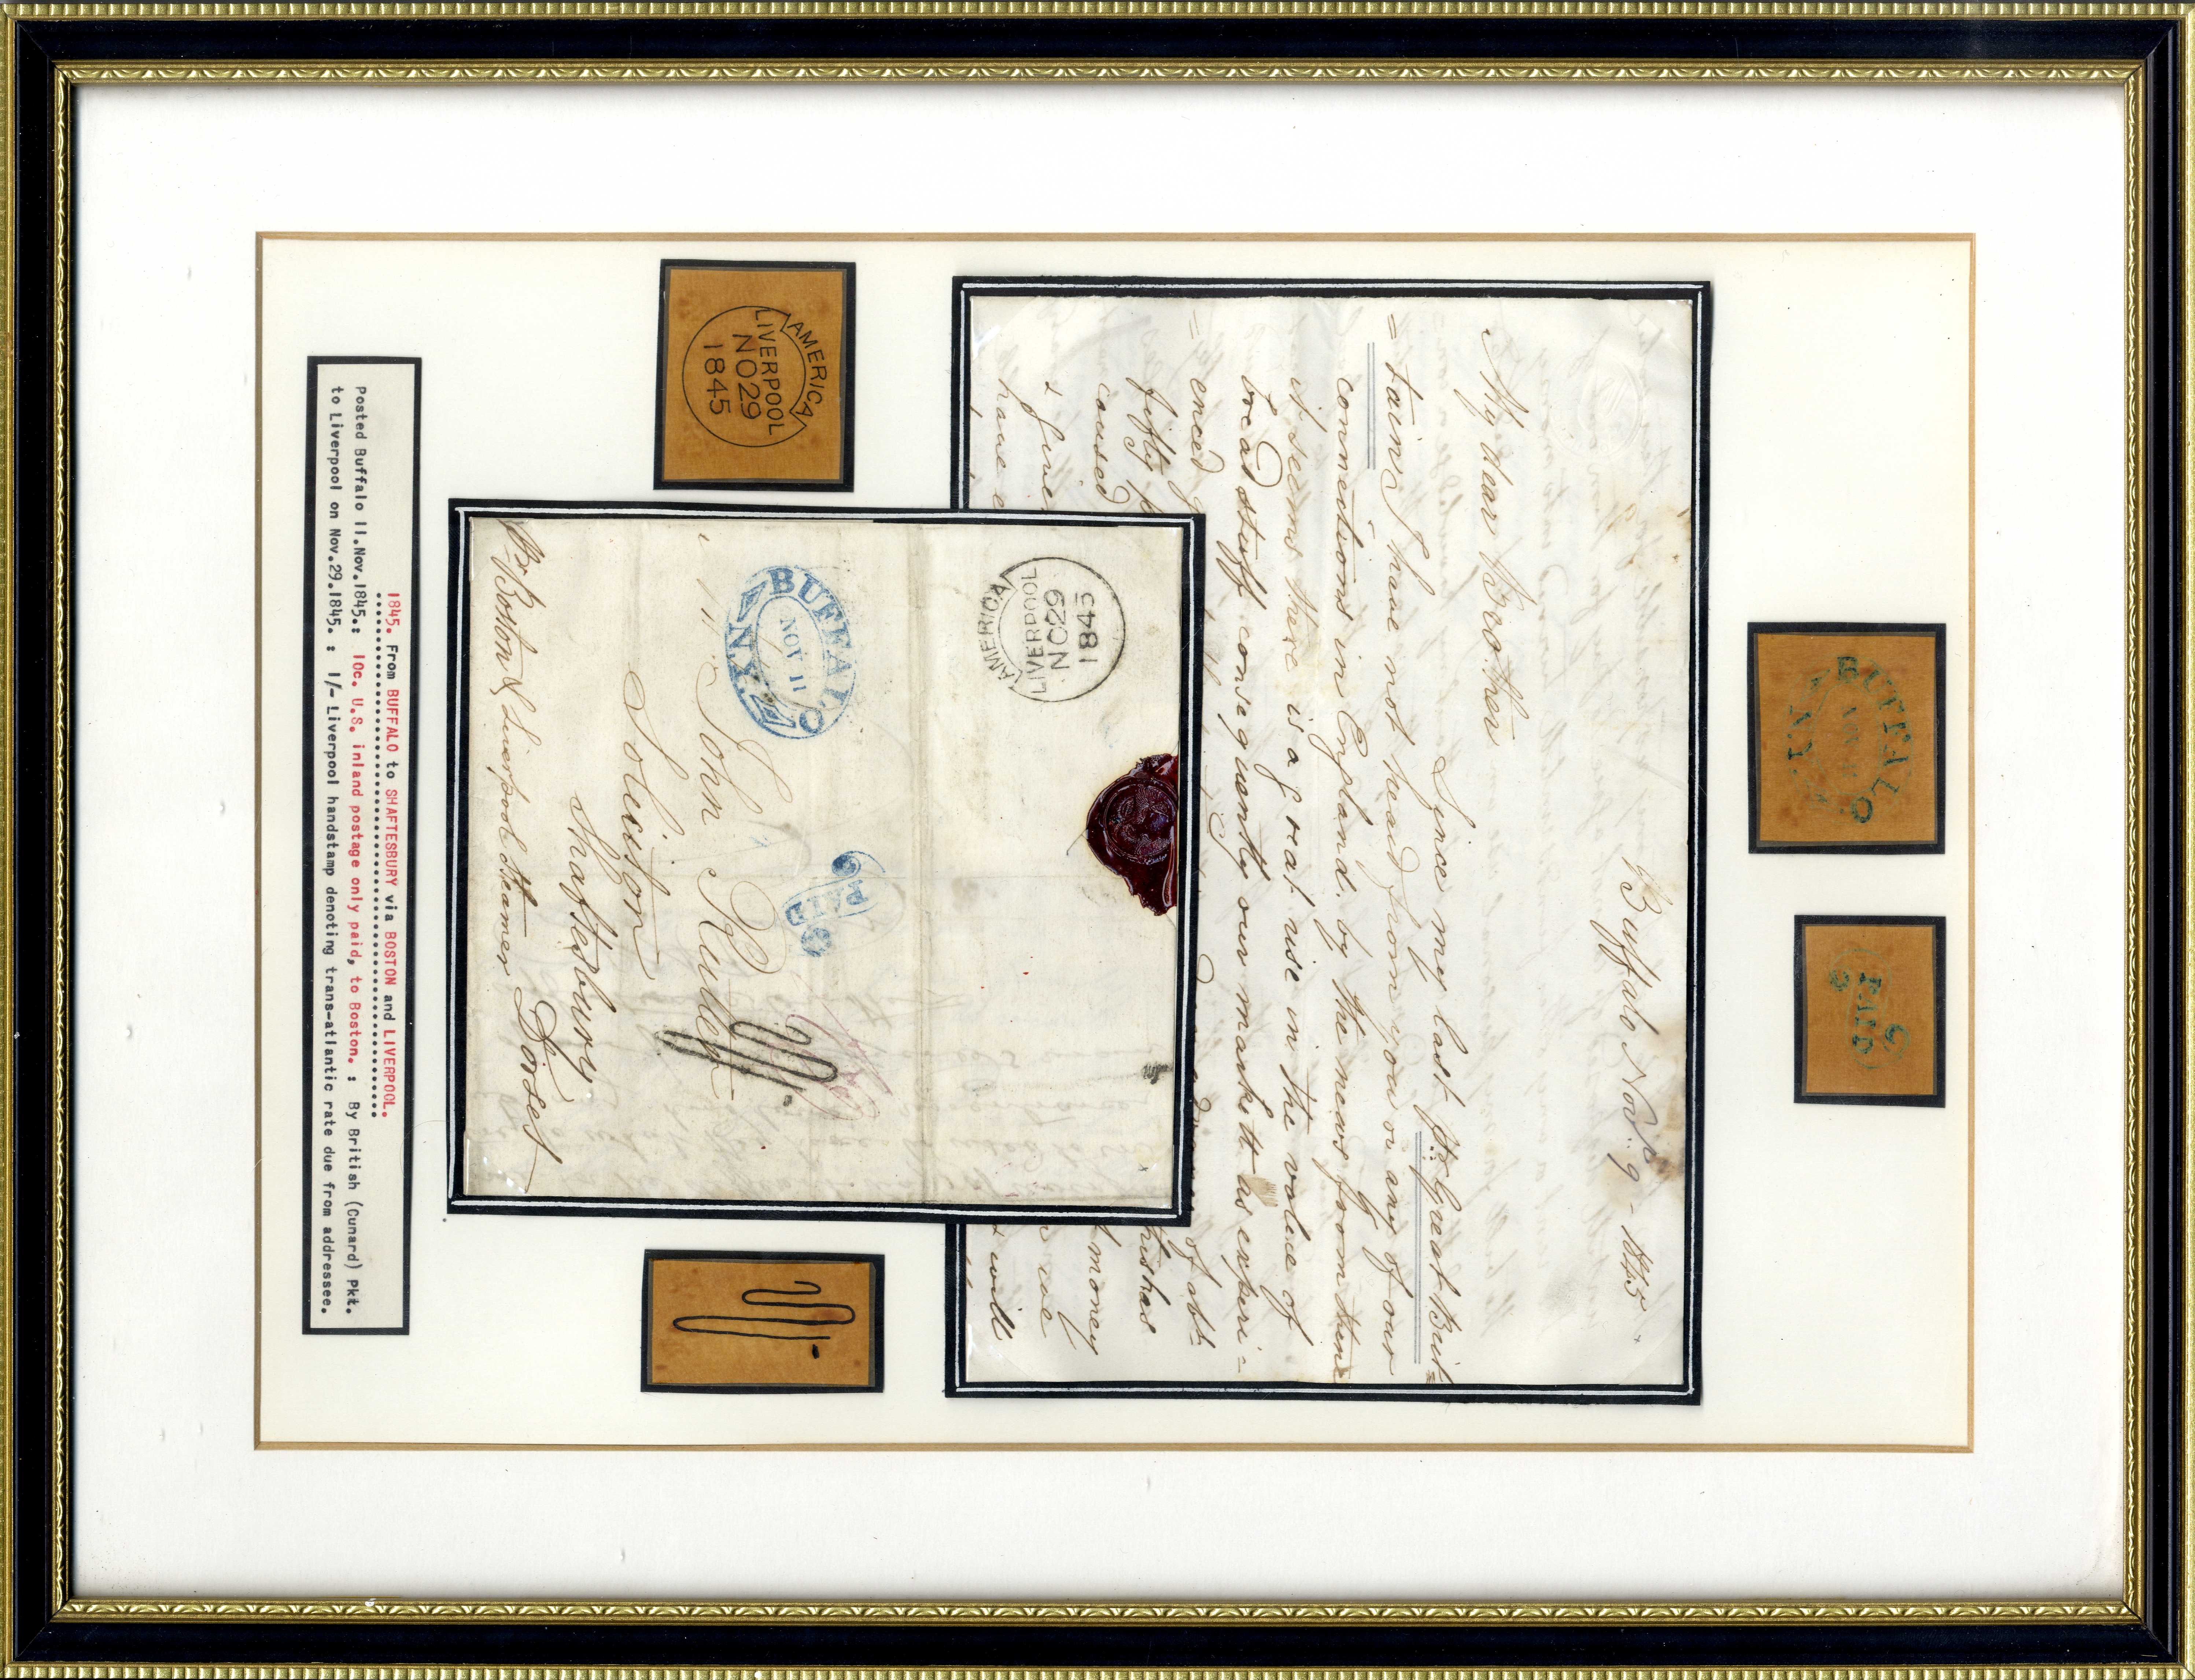 BUFFALO
N.Y.
PAID
Buffalo Nov. 9 - 1845
My dear Brother
Since my last pr Great Brit=
=tain I have not heard from you or any of our
connections in England. by the news from thence
it seems there is a great rise in the value of
bread stuff consequently our markett as experi=
enced
of abt
fifty
this has
caused
money
& give
we
have
& will
AMERICA
LIVERPOOL
NO29
1845
1845
NO29
LIVERPOOL
AMERICA
BUFFALO
NOV 11
N.Y.
PAID
John Rutter
Solicitor
Shaftesbury
Dorset
Pr Boston & Liverpool Steamer
1845. From BUFFALO to SHAFTESBURY via BOSTON and LIVERPOOL.
Posted Buffalo 11.Nov.1845.: 10c. U.S. inland postage only paid, to Boston. : By British (Cunard) Pkt.
to Liverpool on Nov.29.1845. : 1/- Liverpool handstamp denoting trans-atlantic rate due from addressee.